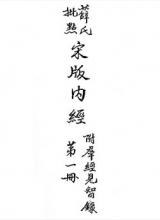 薛氏
批點
宋版内經
附羣經見智錄
第一冊